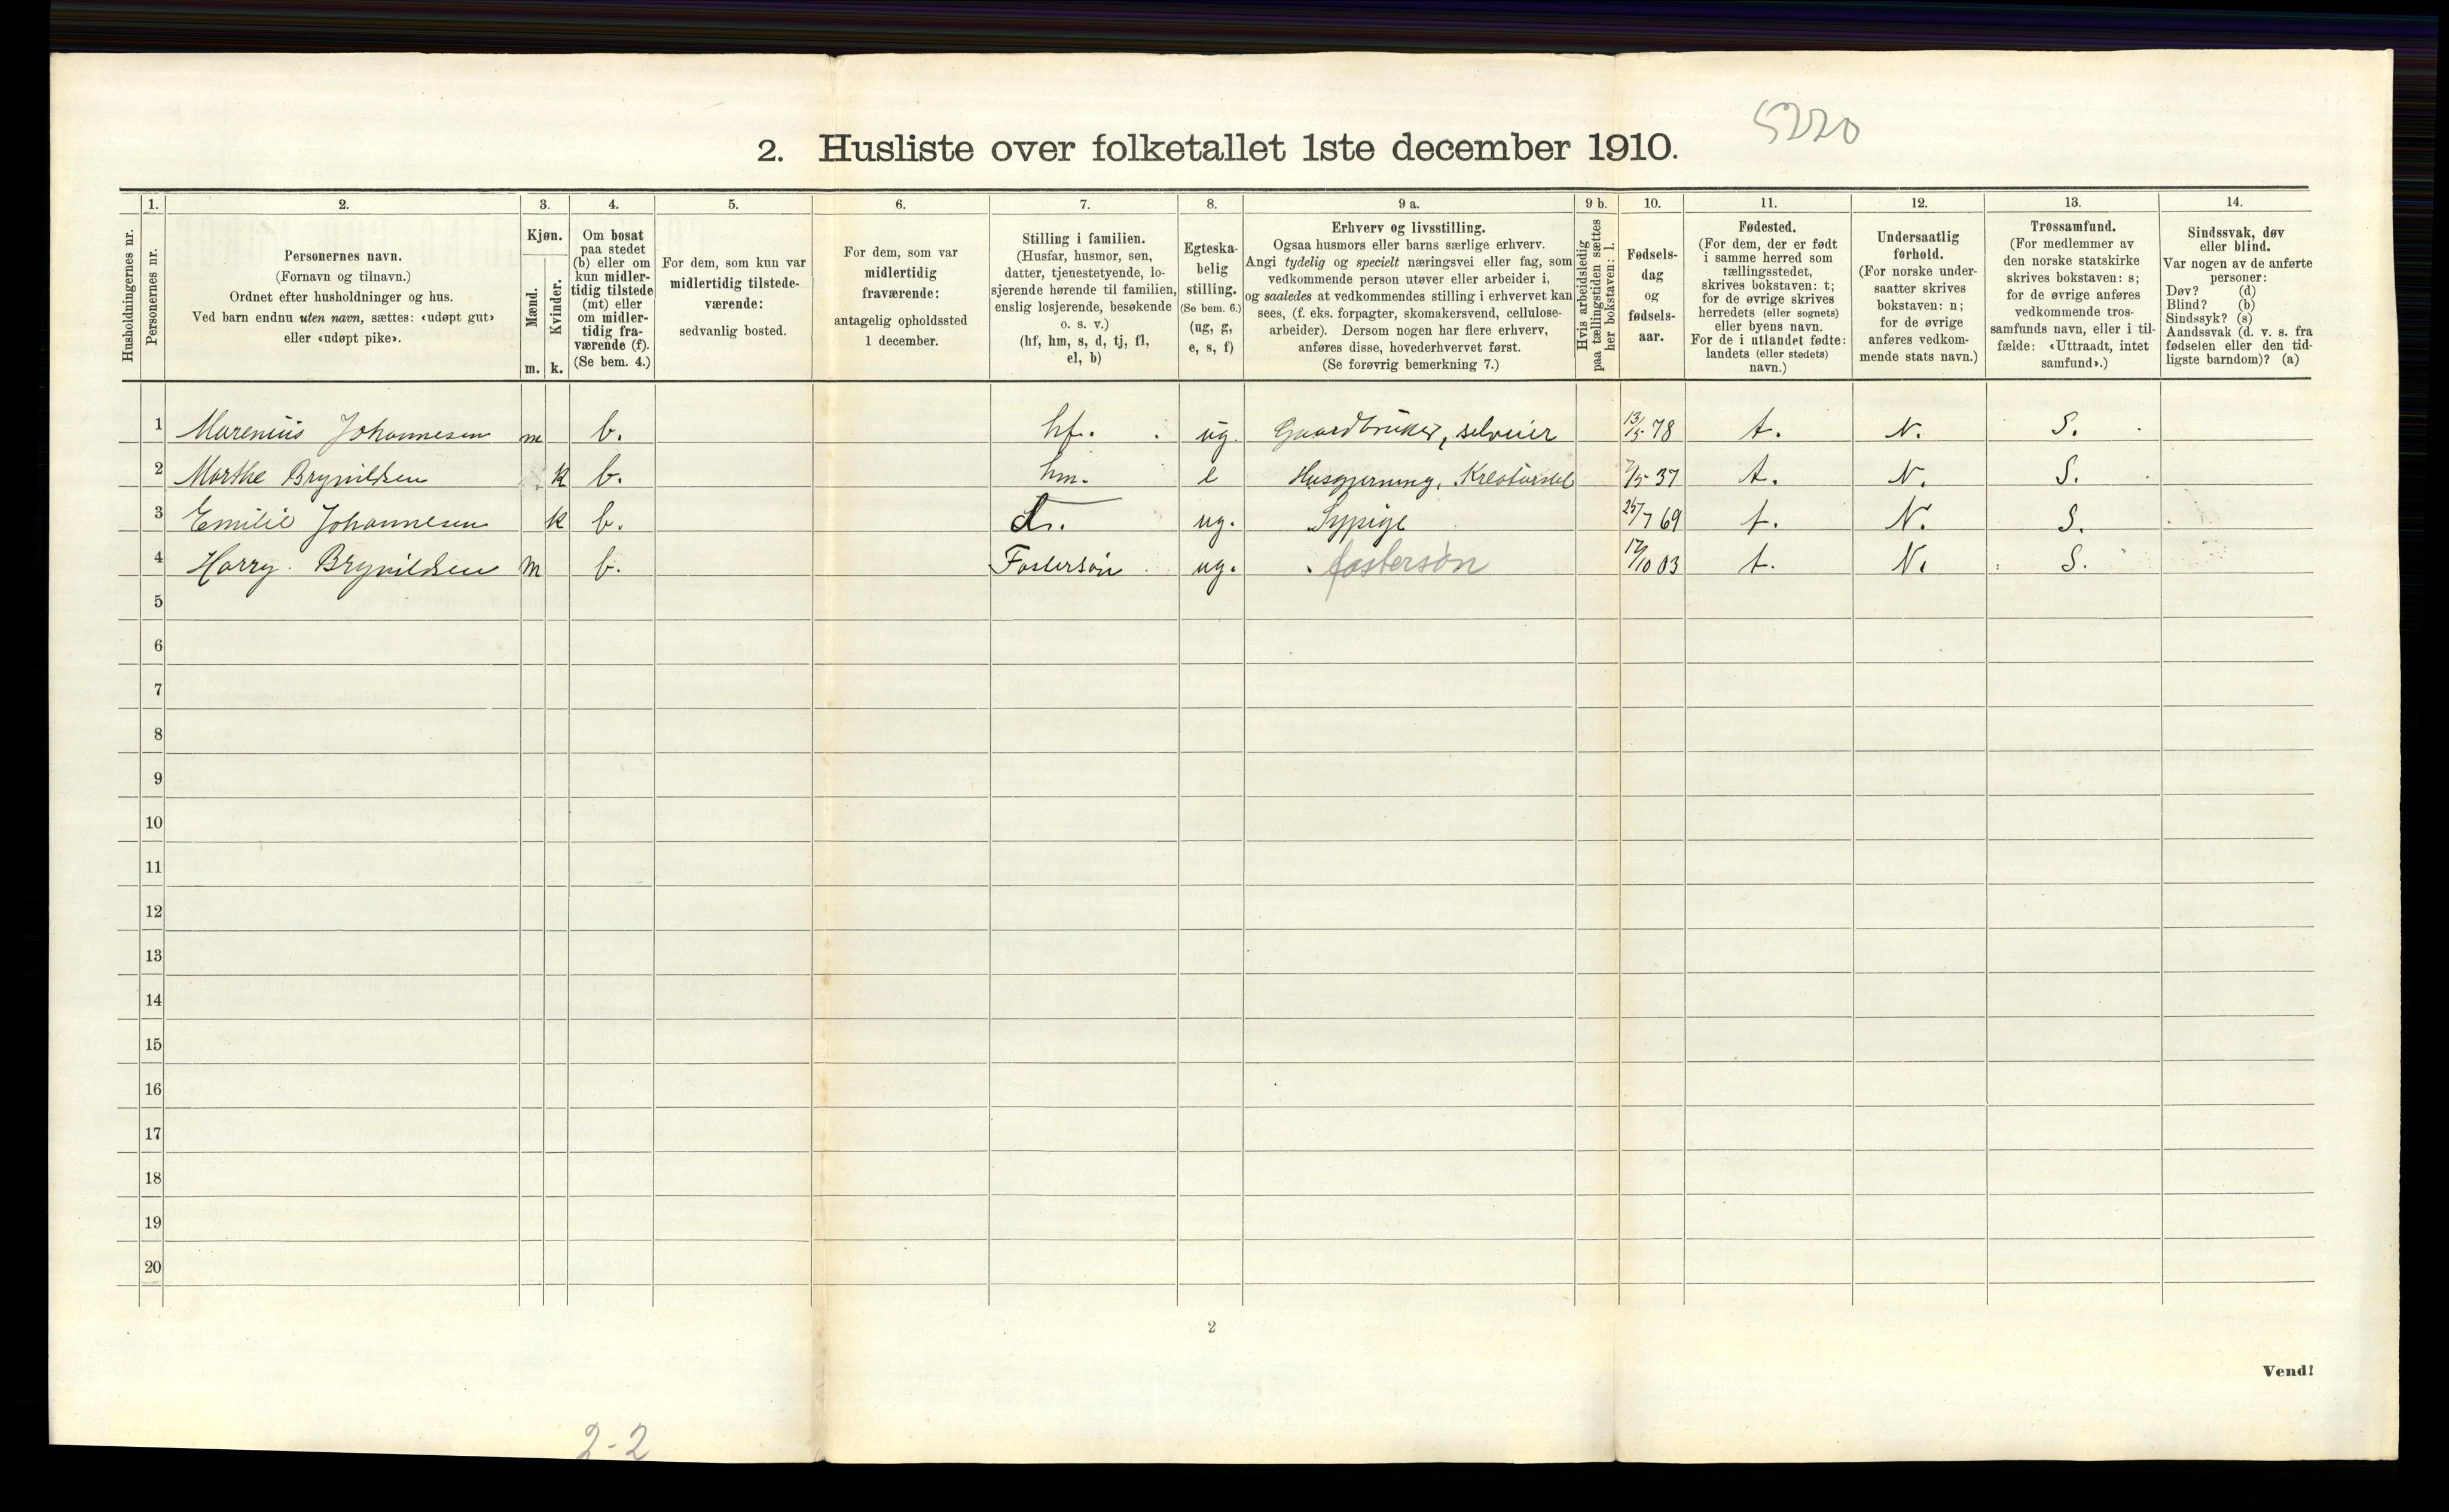 5220
2. Husliste over folketallet 1ste december 1910.
Husholdningernes nr.
1.
Personernes nr.
2.
Personernes navn.
(Fornavn og tilnavn.)
Ordnet efter husholdninger og hus.
Ved barn endnu uten navn, sættes: «udøpt gut»
eller «udøpt pike».
3.
Kjøn.
Mænd.
Kvinder.
m. k.
4.
Om bosat
paa stedet
(b) eller om
kun midler-
tidig tilstede
(mt) eller
om midler-
tidig fra-
værende (f).
(Se bem. 4.)
5.
For dem, som kun var
midlertidig tilstede-
værende:
sedvanlig bosted.
6.
For dem, som var
midlertidig
fraværende:
antagelig opholdssted
1 december.
7.
Stilling i familien.
(Husfar, husmor, søn,
datter, tjenestetyende, lo-
sjerende hørende til familien,
enslig losjerende, besøkende
o. s. v.)
(hf, hm, s, d, tj, fl,
el, b)
8.
Egteska-
belig
stilling.
(Se bem. 6.)
(ug, g,
e, s, f)
9 a.
Erhverv og livsstilling.
Ogsaa husmors eller barns særlige erhverv.
Angi tydelig og specielt næringsvei eller fag, som
vedkommende person utøver eller arbeider i,
og saaledes at vedkommendes stilling i erhvervet kan
sees, (f. eks. forpagter, skomakersvend, cellulose-
arbeider). Dersom nogen har flere erhverv,
anføres disse, hovederhvervet først.
(Se forøvrig bemerkning 7.)
9 b.
Hvis arbeidsledig
paa tællingstiden sættes
her bokstaven: l.
10.
Fødsels-
dag
og
fødsels-
aar.
11.
Fødested.
(For dem, der er født
i samme herred som
tællingsstedet,
skrives bokstaven: t;
for de øvrige skrives
herredets (eller sognets)
eller byens navn.
For de i utlandet fødte:
landets (eller stedets)
navn.)
12.
Undersaatlig
forhold.
(For norske under-
saatter skrives
bokstaven: n;
for de øvrige
anføres vedkom-
mende stats navn.)
13.
Trossamfund.
(For medlemmer av
den norske statskirke
skrives bokstaven: s;
for de øvrige anføres
vedkommende tros-
samfunds navn, eller i til-
fælde: «Uttraadt, intet
samfund».)
14.
Sindssvak, døv
eller blind.
Var nogen av de anførte
personer:
Døv? (d)
Blind? (b)
Sindssyk? (s)
Aandssvak (d. v. s. fra
fødselen eller den tid-
ligste barndom)? (a)
1 Marenius Johannesen m b. hf. ug. Gaardbruker, selveier 13/5 78 t. N. S.
2 Marthe Brynildsen k b. hm. e Husgjerning, Kreaturstel 7/5 37 t. N. S.
3 Emilie Johannesen k b. d. ug. Sypige 25/7 69 t. N. S.
4 Harry Brynildsen m b. Fostersøn ug. fostersøn 17/10 03 t. N. S.
5
6
7
8
9
10
11
12
13
14
15
16
17
18
19
20
2
Vend!
2-2